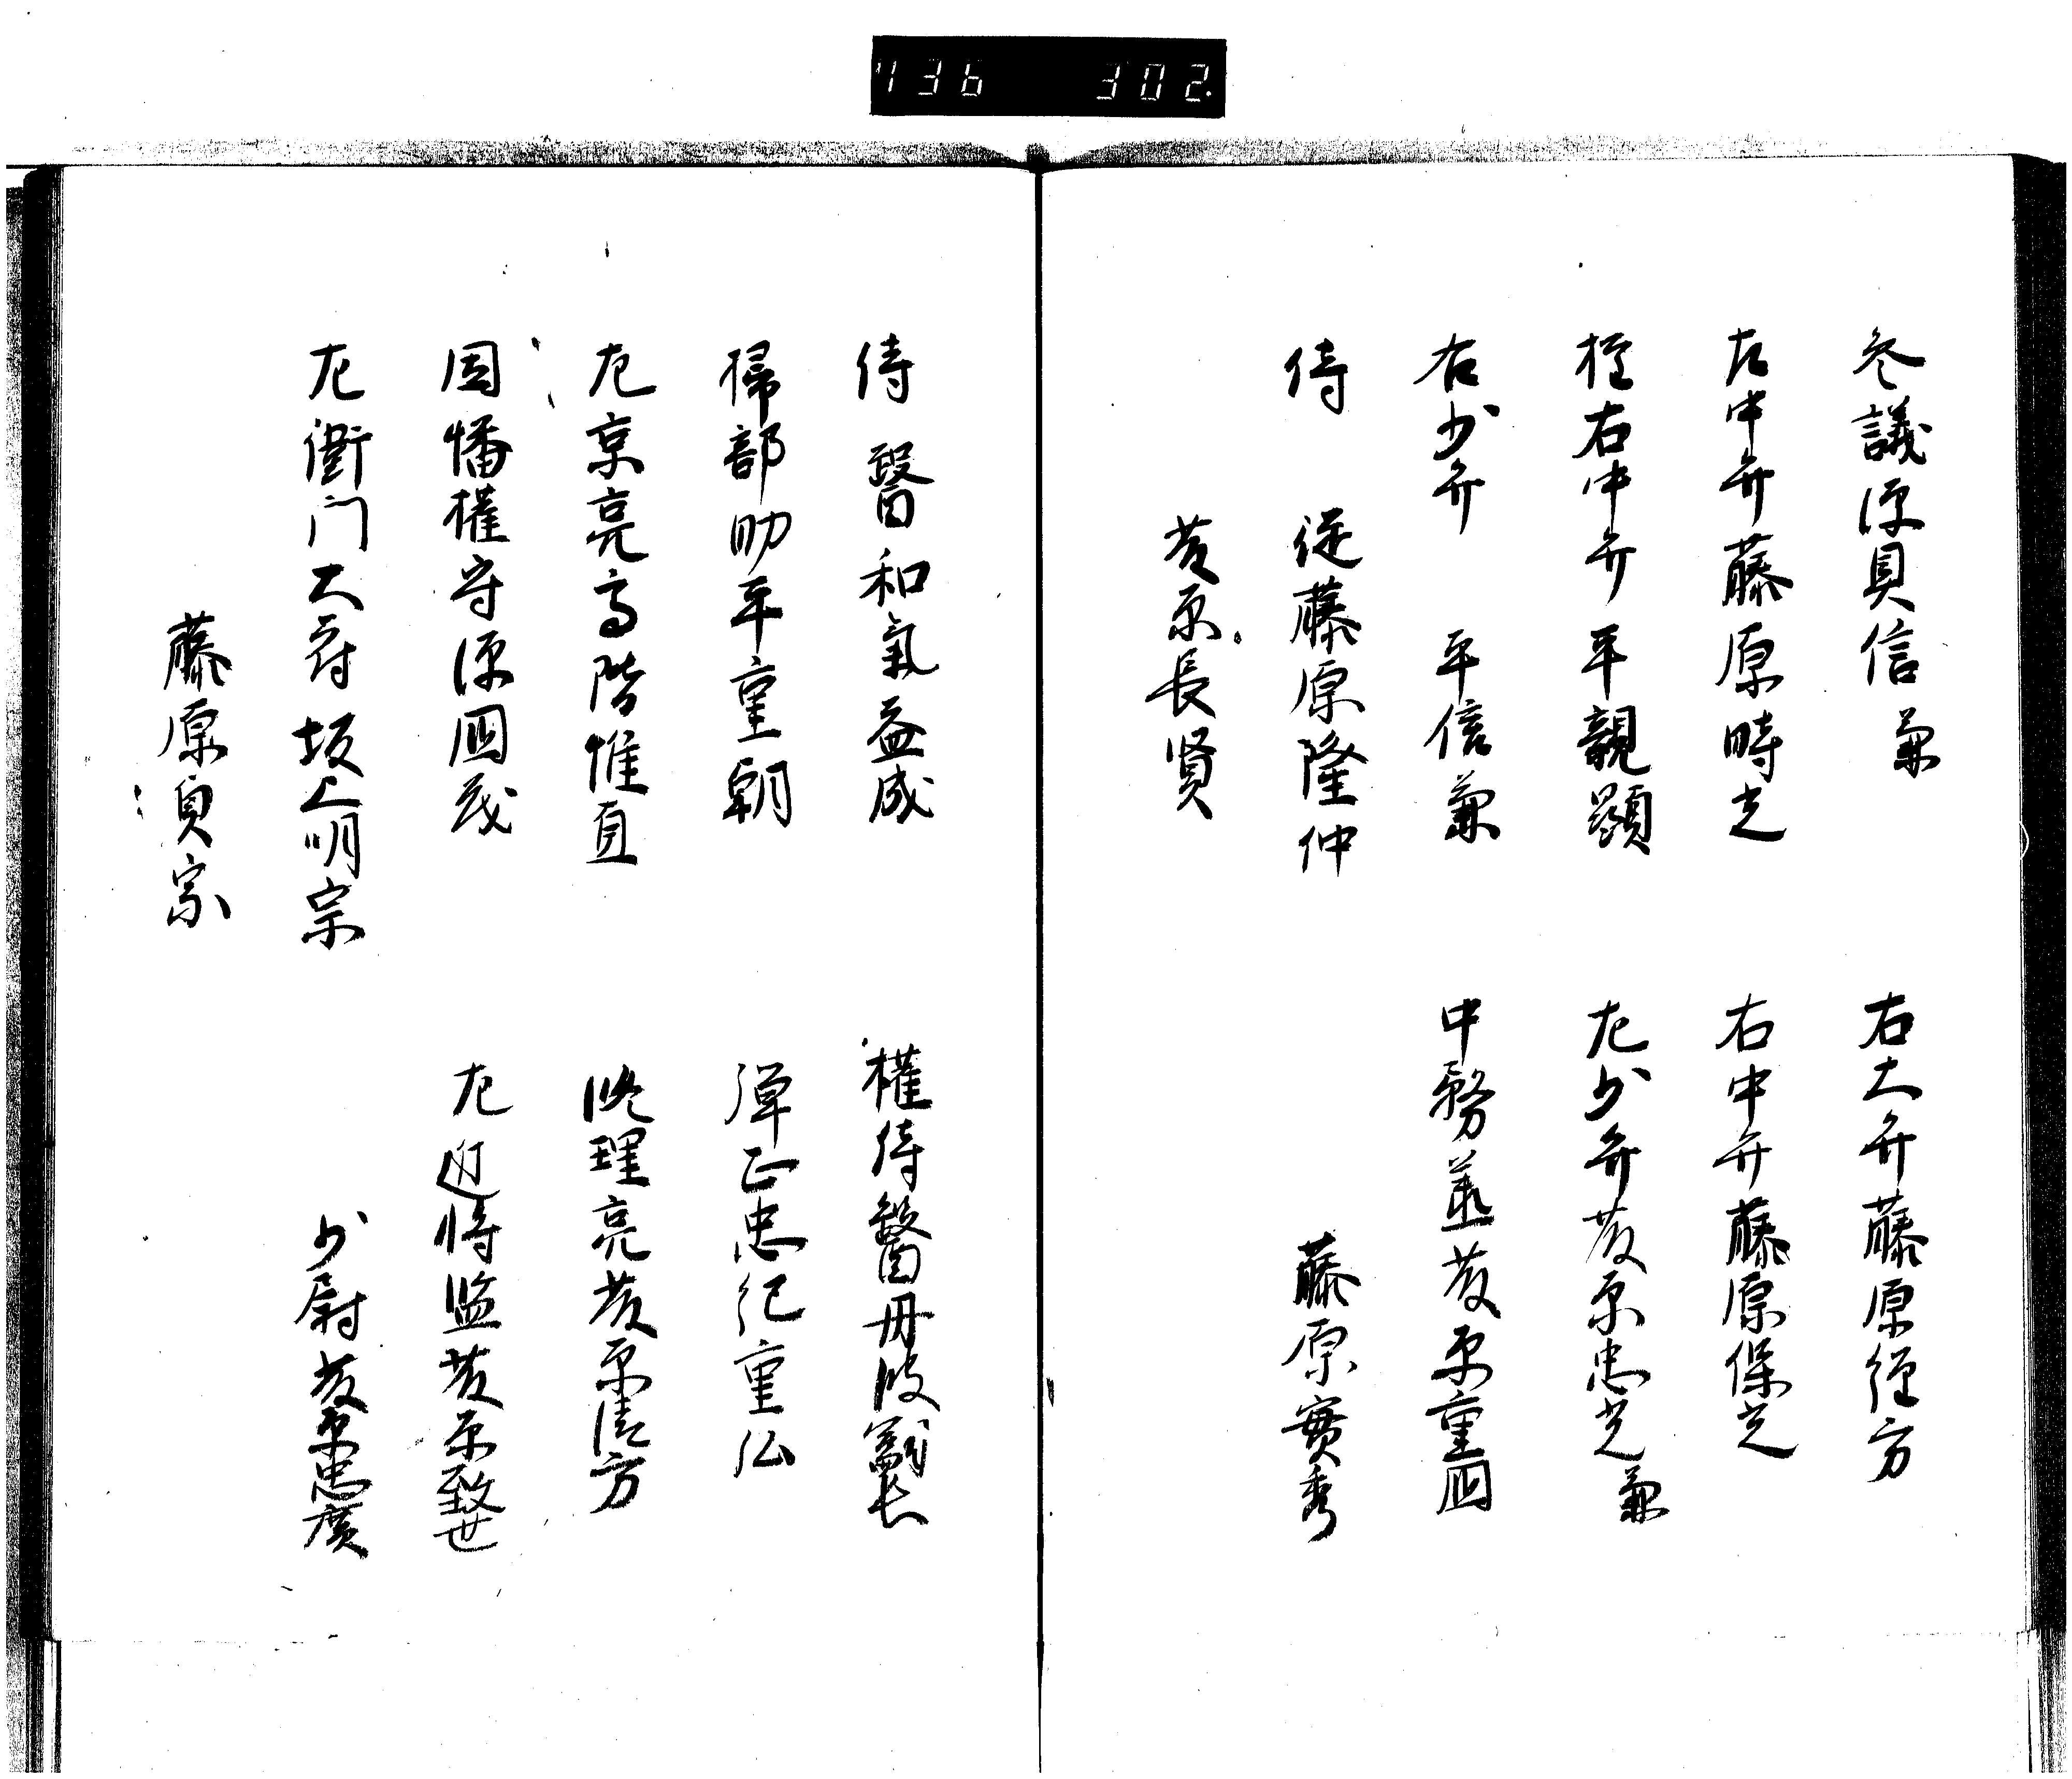 736 302.
参議源具信兼 右大弁藤原経方
左中弁藤原時光 右中弁藤原保光
権右中弁平親顕 左少弁藤原忠光兼
右少弁 平信兼 中務丞藤原重国
侍 従藤原隆仲 藤原實秀
藤原長賢
侍 醫和氣益成 權侍醫丹波嗣長
掃部助平重朝 弾正忠紀重弘
左京亮高階惟直 修理亮藤原清方
因幡權守源国茂 左近将監藤原致世
左衛門大尉坂上明宗 少尉藤原忠廣
藤原貞宗